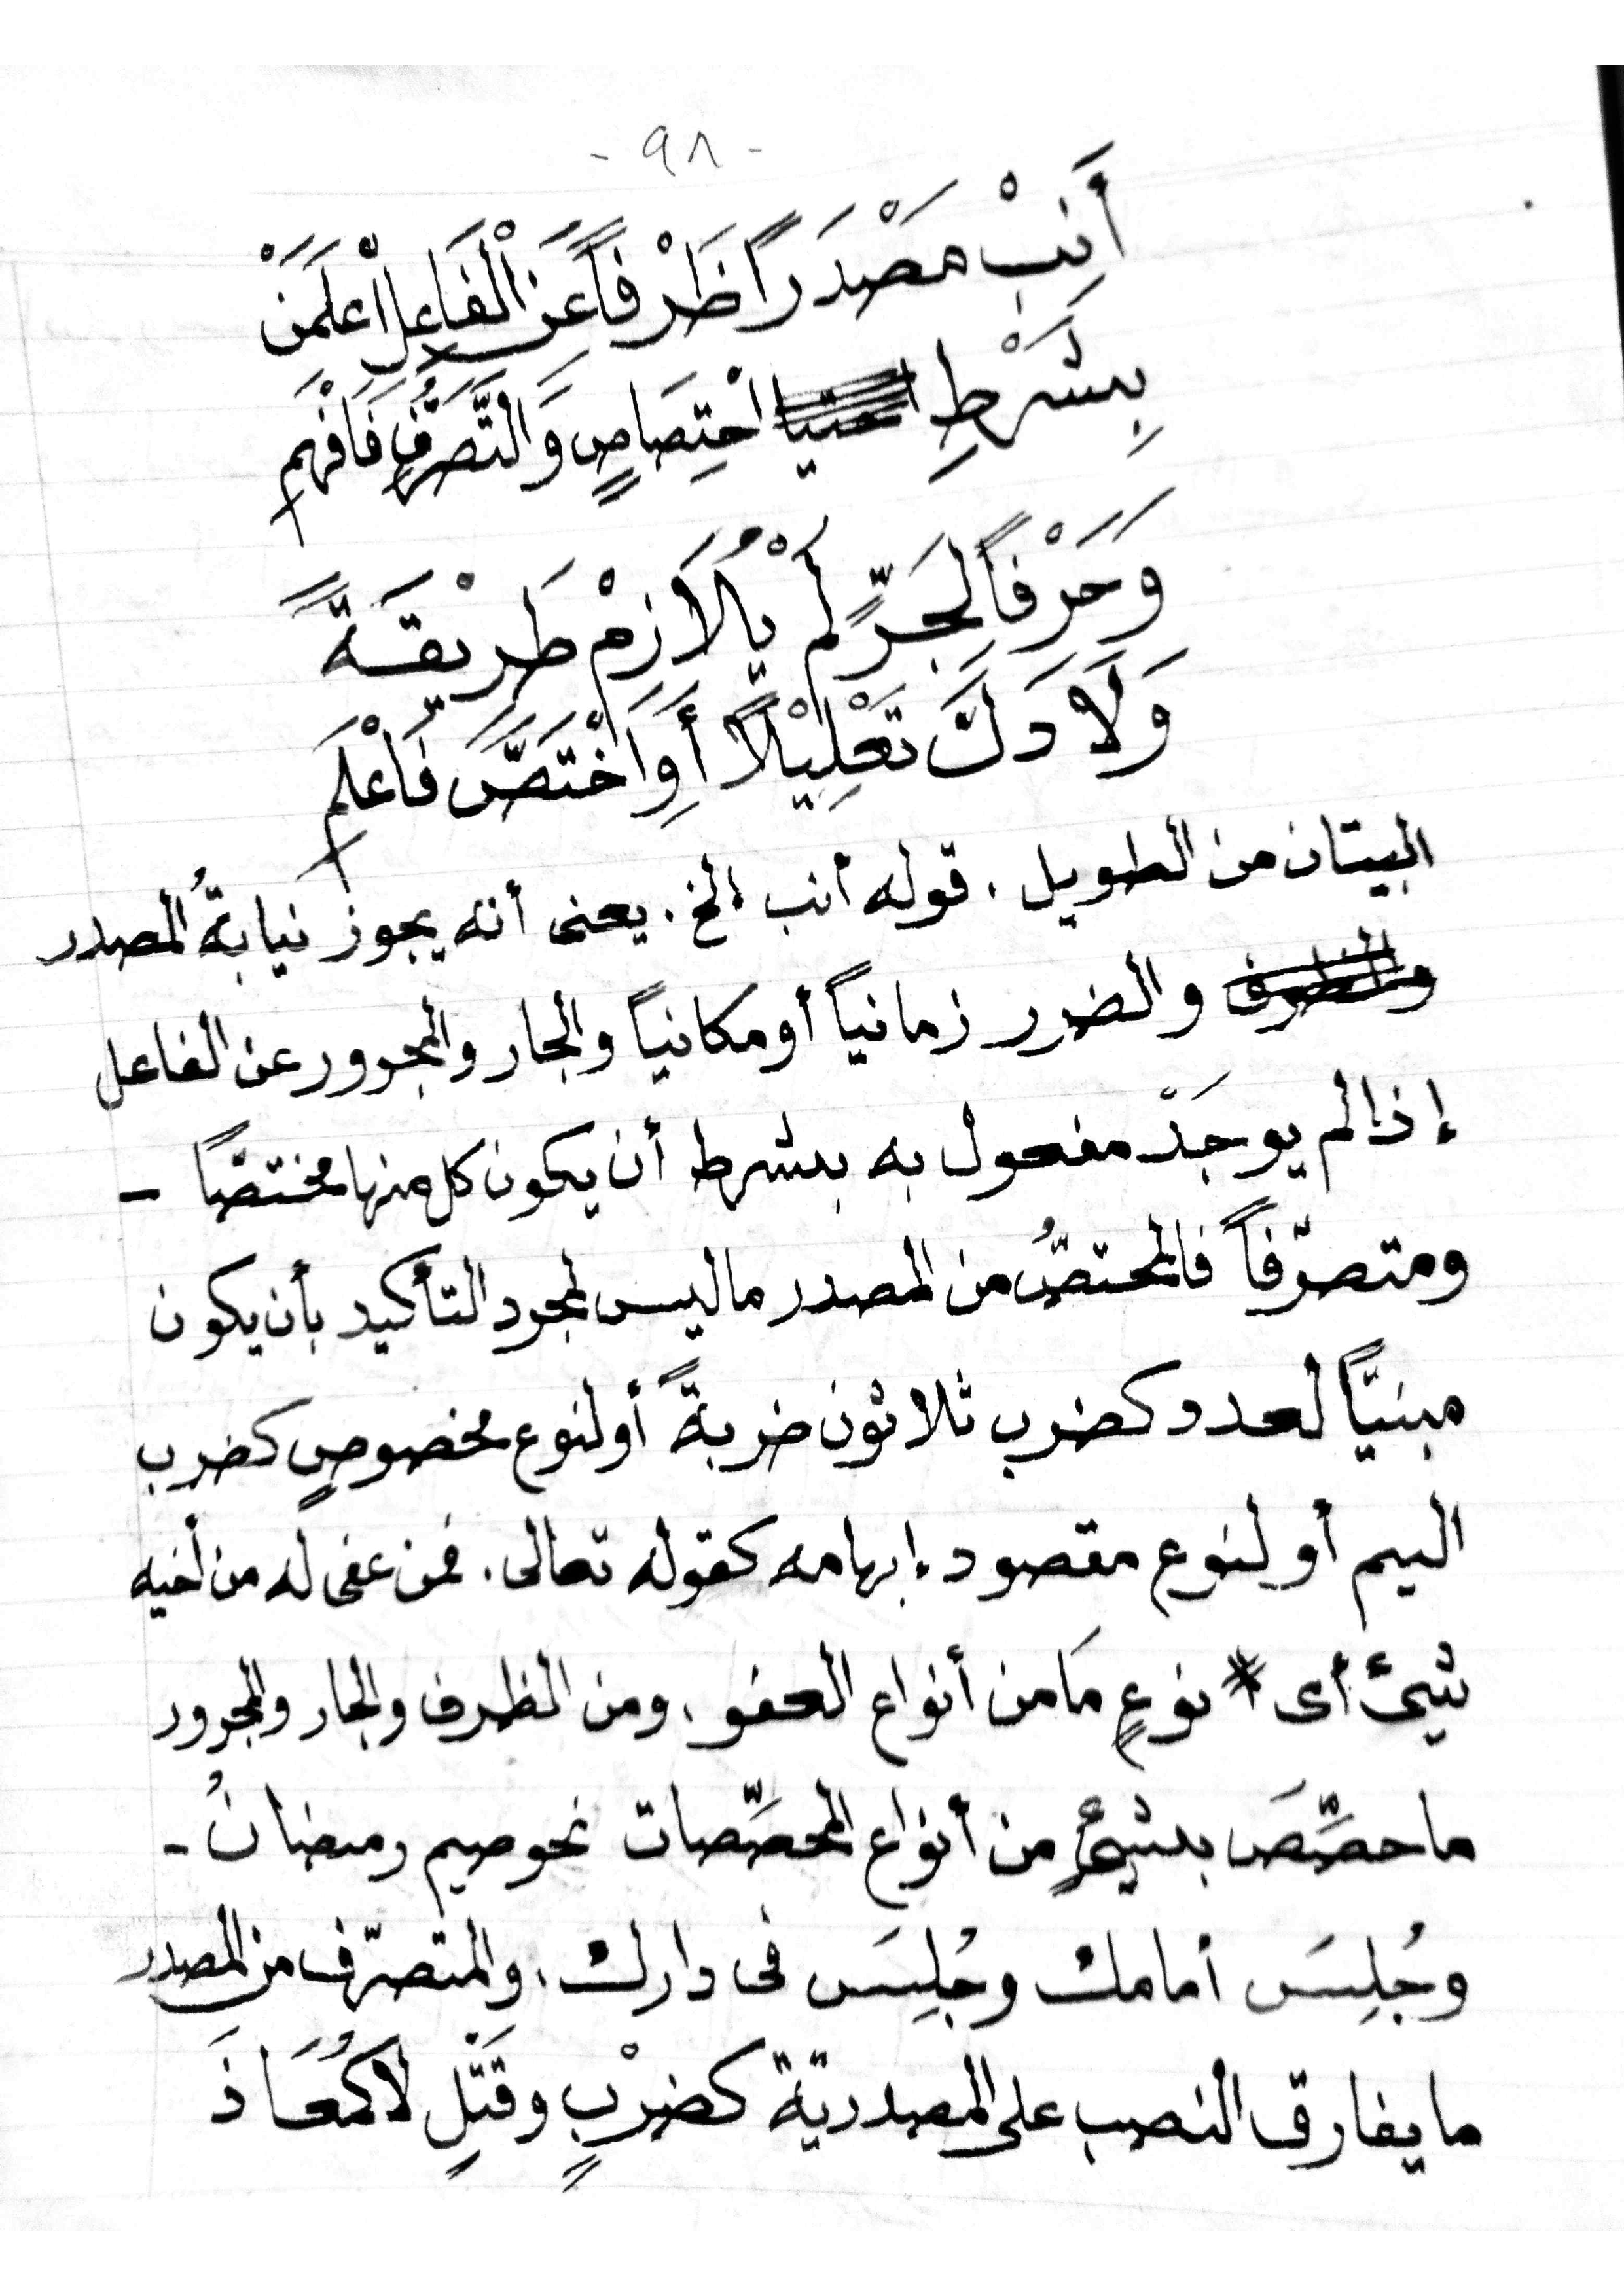 - ٩٨ -
أَنِبْ مَصْدَرًا ظَرْفاً عَنِ الْفَاعِلِ اعْلَمَنْ
بِشَرْطِ اخْتِصَاصٍ وَالتَّصَرُّفِ فَافْهَمِ
وَحَرْفاً لِجَرٍّ لَمْ يُلَازِمْ طَرِيْقَةً
وَلَا دَلَّ تَعْلِيْلاً أَوِ اخْتَصَّ فَاعْلَمِ
البيتان من الطويل . قوله أنب الخ . يعنى أنه يجوز نيابةُ المصدر
والضرر زمانياً أو مكانياً والجار والمجرور عن الفاعل
إذا لم يوجَدْ مفعول به بشرط أن يكون كل منها مختصًّا -
ومتصرّفاً فالمختصُّ من المصدر ما ليس لمجرد التأكيد بأن يكون
مبنيًّا لعدد كضرب ثلاثون ضربةً أو لنوع مخصوصٍ كضرب
اليم أو لنوع مقصود إبهامه كقوله تعالى . فمن عفى له من أخيه
شيئ أى نوعٍ مَا من أنواع العفو . ومن الظرف والجار والمجرور
ما خصِّصَ بشيئٍ من أنواع المخصِّصات نحو صيم رمضانُ -
وجُلِسَ أمامك وجُلِسَ فى دارك . والمتصرّف من المصدر
ما يفارق النصب على المصدريّة كضرْبٍ وقَتْلٍ لا كمُعَاذَ